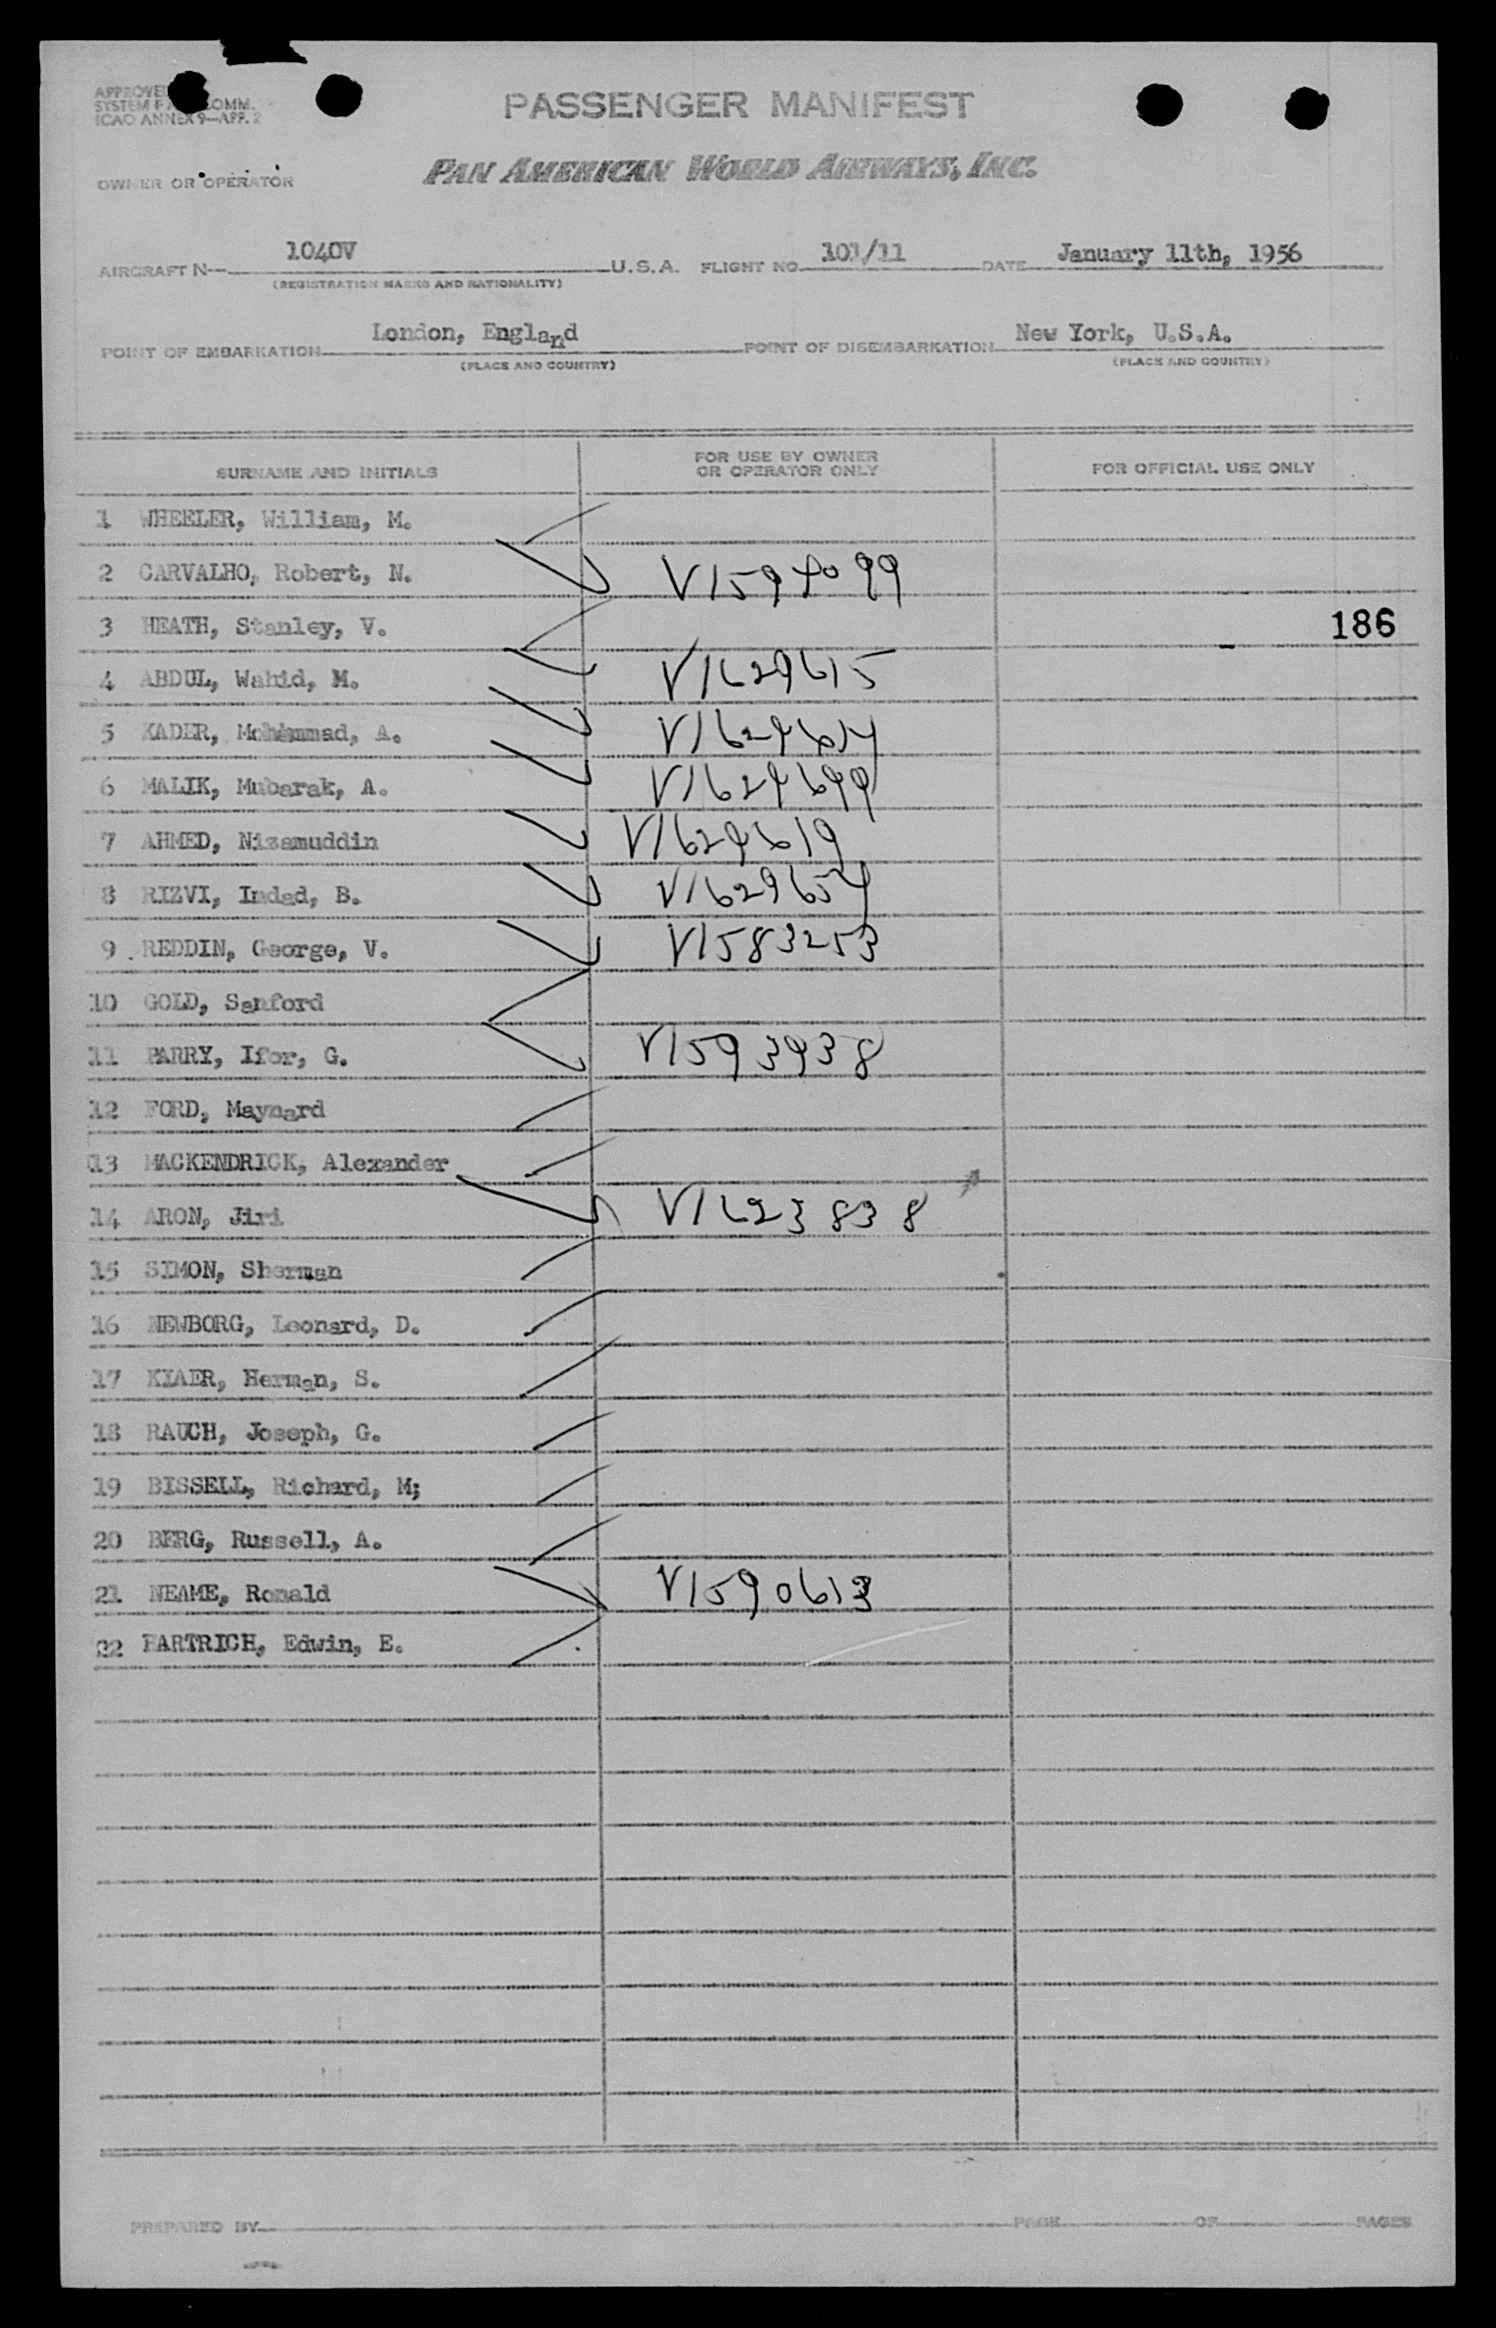 APPROVED
SYSTEM COMM.
ICAO ANNEX 9—APP. 2
PASSENGER MANIFEST
OWNER OR OPERATOR
PAN AMERICAN WORLD AIRWAYS, INC.
AIRCRAFT N— 1040V U.S.A. FLIGHT NO. 101/11 DATE January 11th, 1956
(REGISTRATION MARKS AND NATIONALITY)
POINT OF EMBARKATION London, England POINT OF DISEMBARKATION New York, U.S.A.
(PLACE AND COUNTRY) (PLACE AND COUNTRY)
SURNAME AND INITIALS FOR USE BY OWNER OR OPERATOR ONLY FOR OFFICIAL USE ONLY
1 WHEELER, William, M.
2 CARVALHO, Robert, N. V1594099
3 HEATH, Stanley, V. 186
4 ABDUL, Wahid, M. V1629615
5 KADER, Mohammad, A. V1629614
6 MALIK, Mubarak, A. V1629699
7 AHMED, Nizamuddin V1629619
8 RIZVI, Imdad, B. V1629654
9 REDDIN, George, V. V1583253
10 GOLD, Sanford
11 PARRY, Ifor, G. V1593938
12 FORD, Maynard
13 MACKENDRICK, Alexander
14 ARON, Jiri V1623838
15 SIMON, Sherman
16 NEWBORG, Leonard, D.
17 KIAER, Herman, S.
18 RAUCH, Joseph, G.
19 BISSELL, Richard, M;
20 BERG, Russell, A.
21 NEAME, Ronald V1590613
22 PARTRICH, Edwin, E.
PREPARED BY PAGE OF PAGES